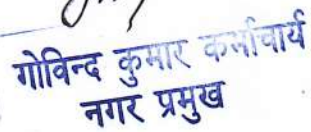 गोविन्द कुमार कर्माचार्य
नगर प्रमुख